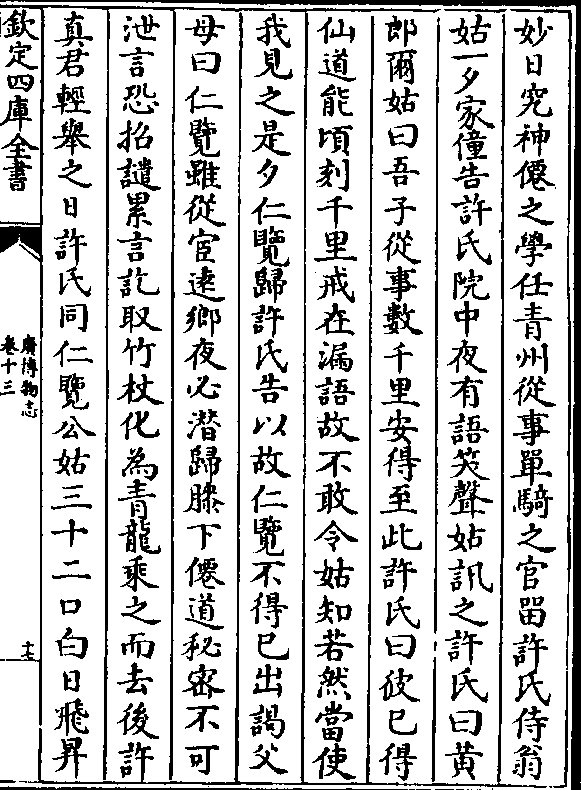 妙日究神僊之學任青州從事單騎之官留許氏侍翁
姑一夕家僮告許氏院中夜有語笑聲姑訊之許氏曰黄
郎爾姑曰吾子從事數千里安得至此許氏曰彼已得
仙道能頃刻千里戒在漏語故不敢令姑知若然當使
我見之是夕仁覽歸許氏告以故仁覽不得已出謁父
母曰仁覽雖從宦逺鄉夜必潛歸膝下僊道秘密不可
泄言恐招譴累言訖取竹杖化為青龍乘之而去後許
真君輕舉之日許氏同仁覽公姑三十二口白日飛昇
欽定四庫全書
廣博物志
卷十三
十七